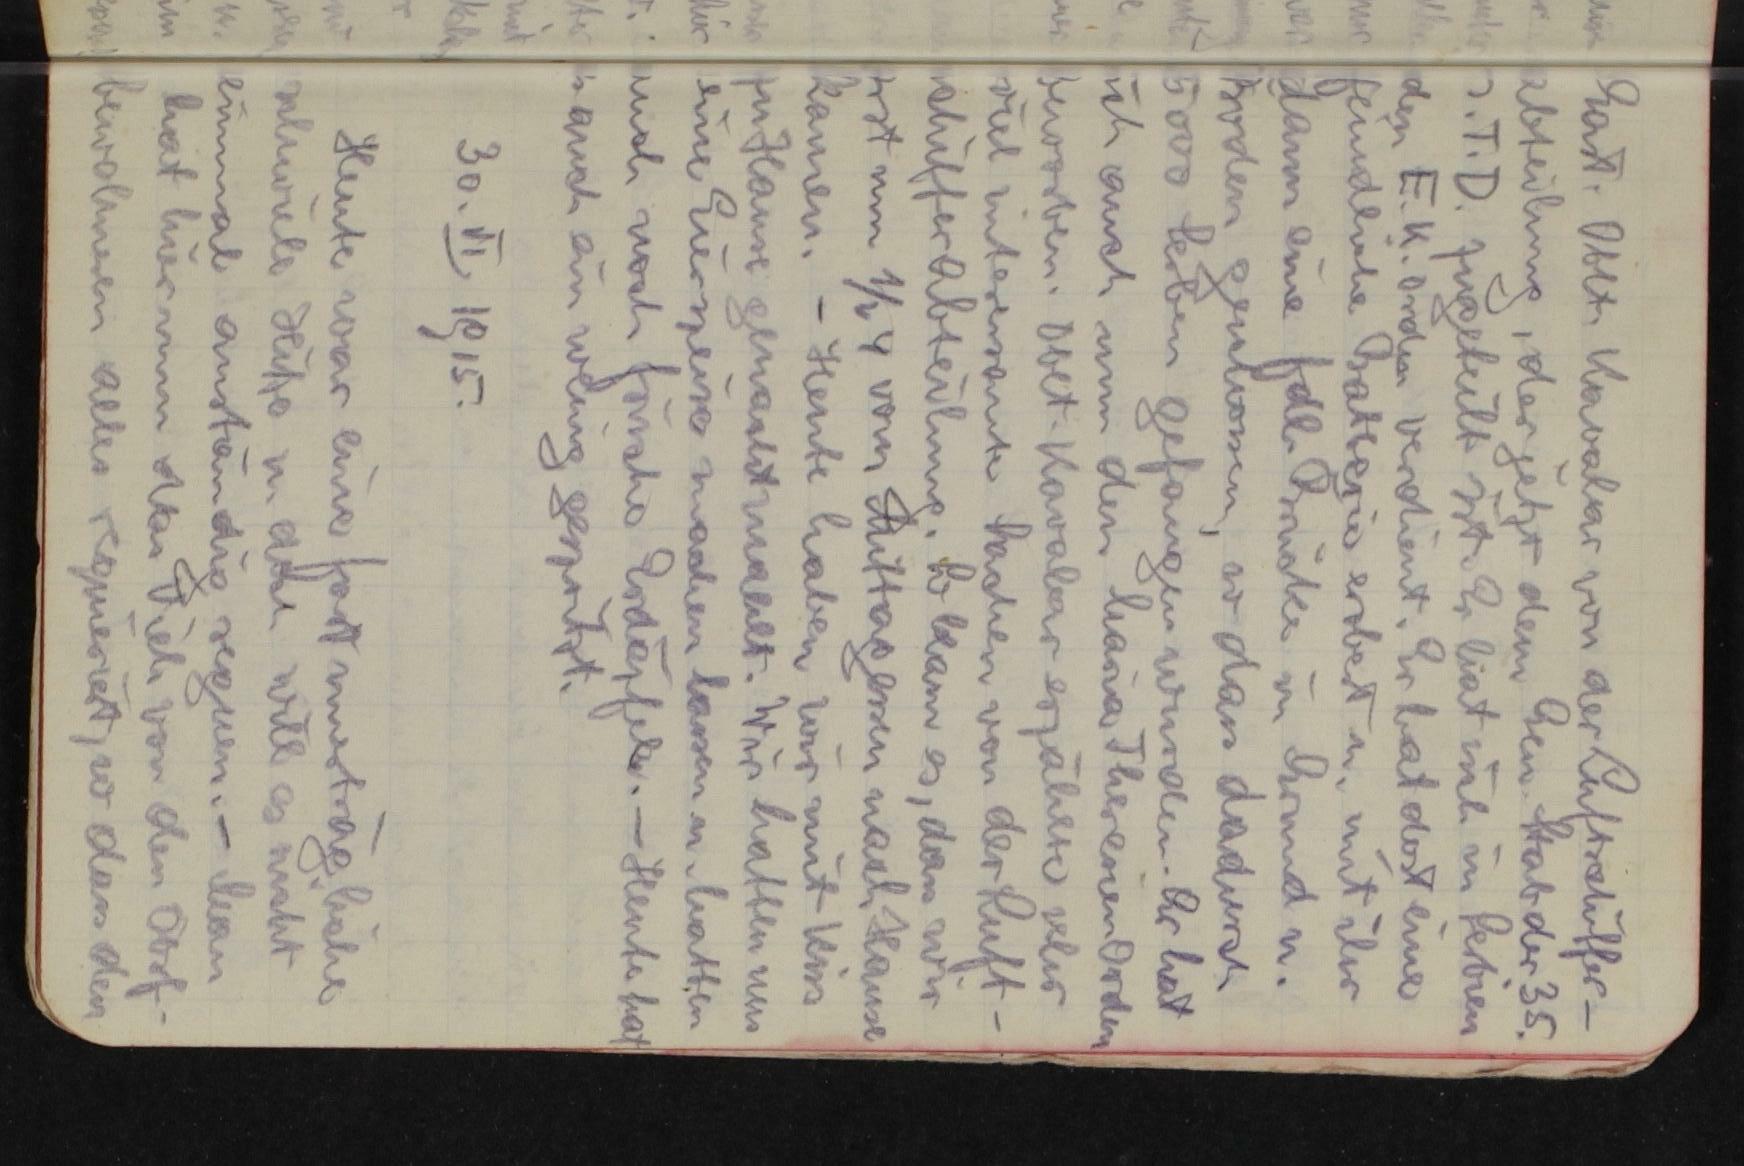 Gast. Oblt. Kavalar von der Luftschiffer-
abteilung, der jetzt dem Gen. Stab der 35.
J.T.D. zugeteilt ist. Er hat sich in Serbien
den E.K. Orden verdient. Er hat dort eine
feindliche Batterie erobert u. mit ihr
dann eine fdl. Brücke in Grund u.
Boden geschossen, so dass dadurch
5000 Serben gefangen wurden. Er hat
sich auch nun den Maria Theresien Orden
erworben. Oblt. Kavalar erzählte sehr
viel interessante Sachen von der Luft-
schifferabteilung. So kam es, dass wir
erst um 1/2 4 vom Mittagessen nach Hause
kamen. – Heute haben wir mit Kiss
zu Hause genachtmahlt. Wir hatten uns
eine Eierspeise machen lassen u. hatten
auch noch frische Erdäpfel. – Heute hat
es auch ein wenig gespritzt.
30. VI 1915.
Heute war eine fast unerträgliche
schwüle Hitze u. doch will es nicht
einmal anständig regnen. – Man
hat hier nun das Vieh von den Dorf-
bewohnern alles requiriert, so dass den